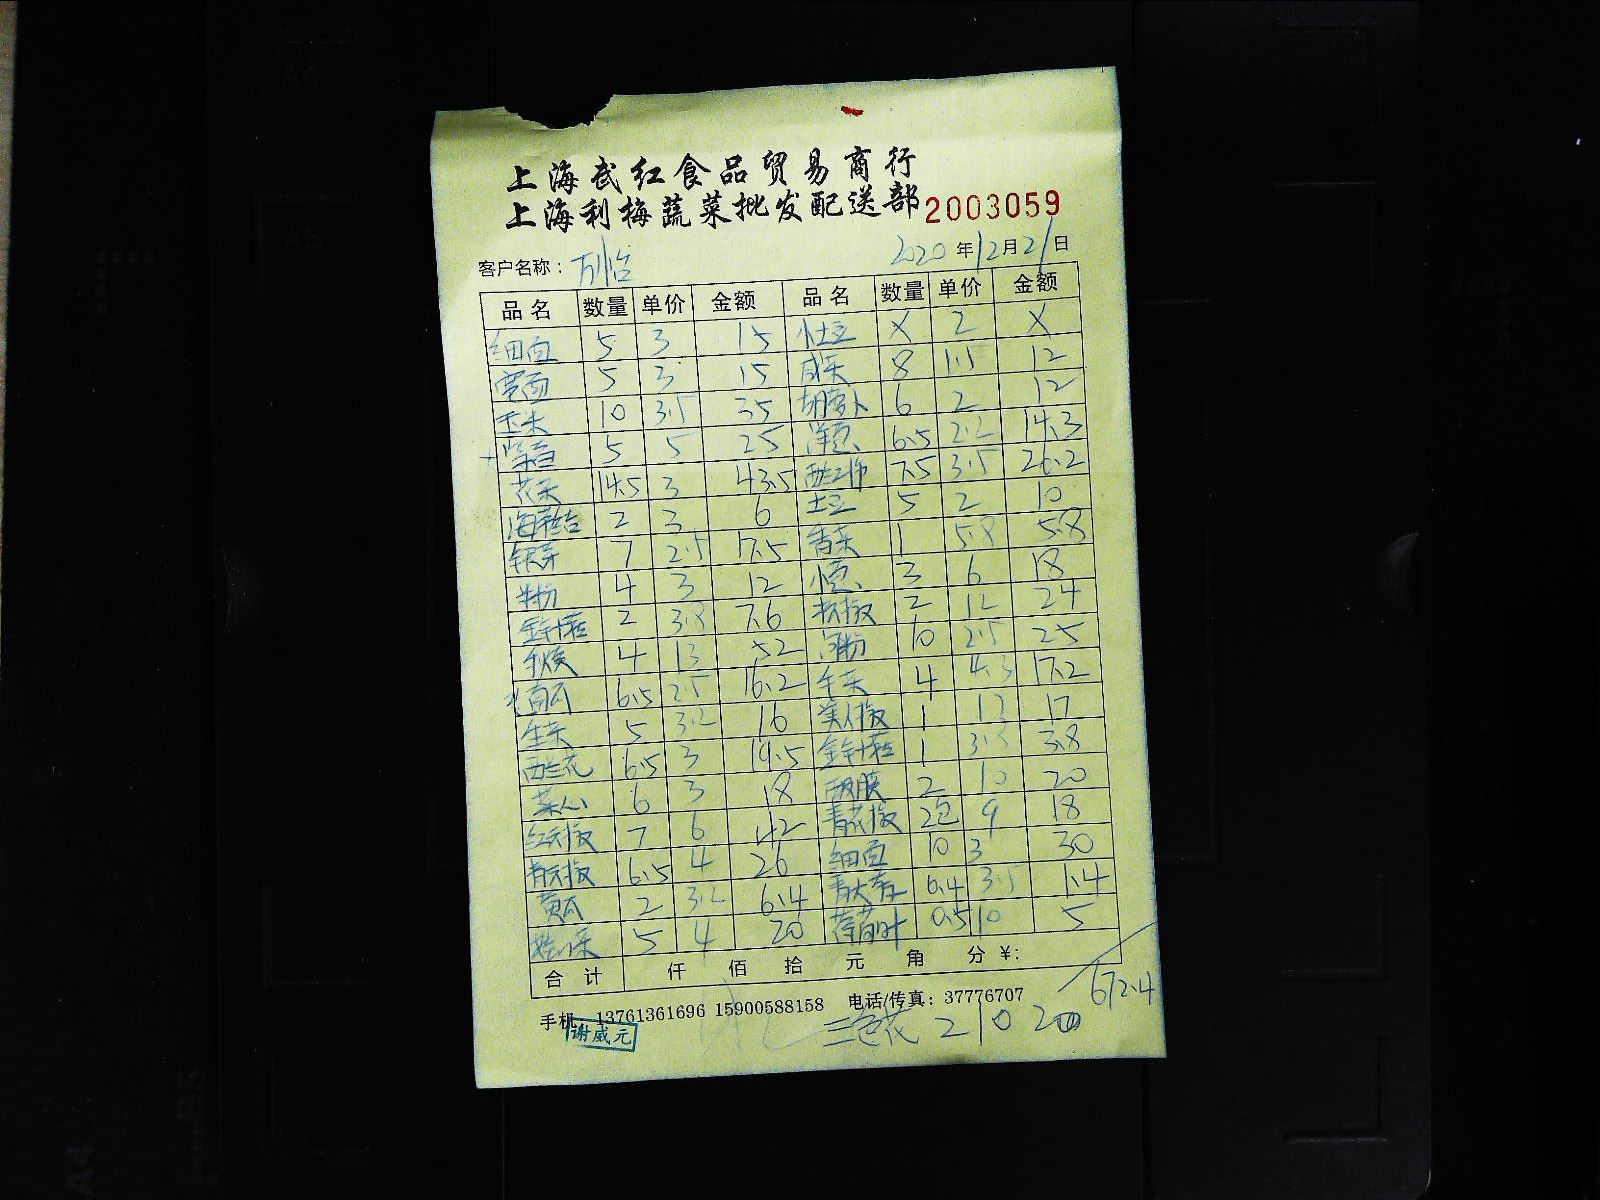 上海武红食品贸易商行
上海利梅蔬菜批发配送部 2003059
客户名称: 万怡 2020年12月21日
品名 数量 单价 金额 品名 数量 单价 金额
细面 5 3 15 小土豆 X 2 X
宽面 5 3 15 咸菜 8 1.5 12
玉米 10 3.5 35 胡萝卜 6 2 12
5 5 25 洋葱 6.5 2.2 14.3
花菜 14.5 3 43.5 7.5 3.5 26.2
海带结 2 3 6 土豆 5 2 10
银芽 7 2.5 17.5 香菜 1 5.8 5.8
4 3 12 小葱 3 6 18
金针菇 2 3.8 7.6 2 12 24
4 13 52 河粉 10 2.5 25
6.5 2.5 16.2 4 4.3 17.2
生菜 5 3.2 16 美人椒 1 17
西兰花 6.5 3 19.5 金针菇 1 3.8
菜心 6 3 18 2 10 20
7 6 42 青花椒 2包 9 18
6.5 4 26 细面 10 3 30
黄瓜 2 3.2 6.4 0.4 3.5 1.4
5 4 20 薄荷叶 0.5 10 5
合计 仟 佰 拾 元 角 分 ¥:
672.4
手机: 13761361696 15900588158 电话/传真: 37776707
谢威元
三色花 2 10 20